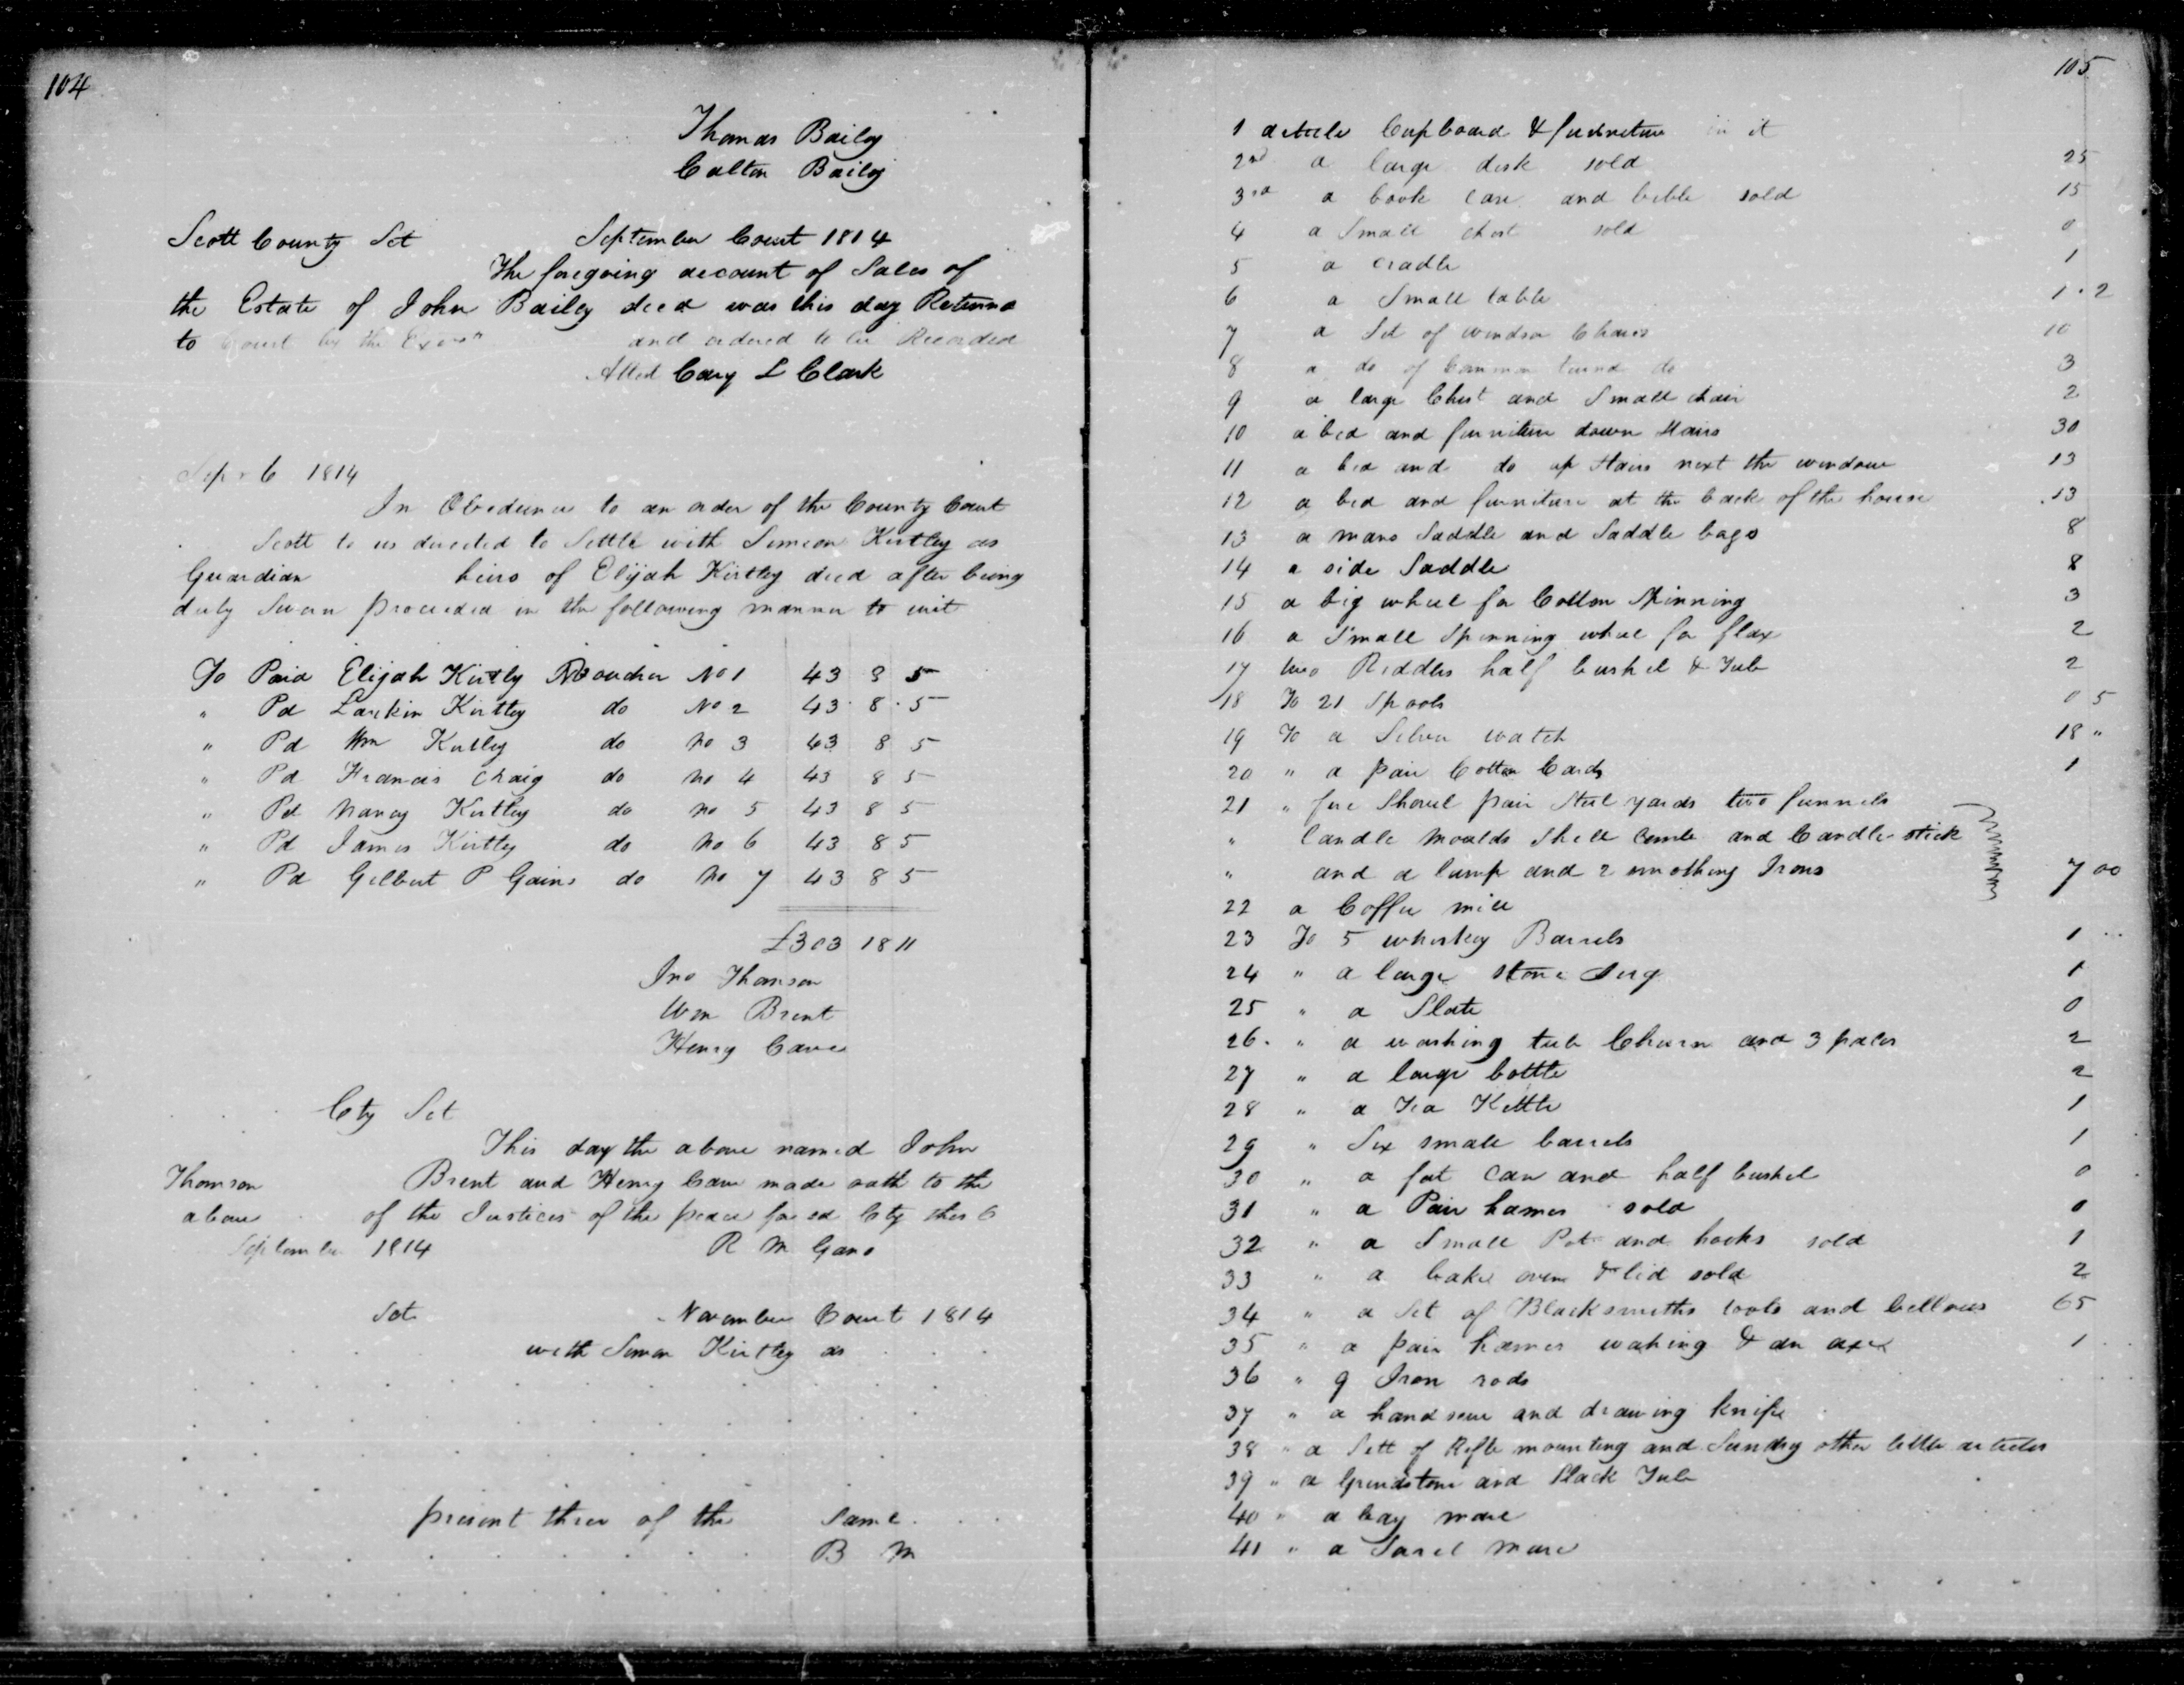 104
Thomas Bailey
Calton Bailey
Scott County Sct September Court 1814
The foregoing account of Sales of
the Estate of John Bailey decd was this day Returnd
to Court by the Exors and ordered to be Recorded
Atted Cary L Clark
Sepr 6 1814
In Obedience to an order of the County Court
Scott to us directed to Settle with Simeon Kirtley as
Guardian heirs of Elijah Kirtley decd after being
duly Sworn proceeded in the following manner to wit
To Paid Elijah Kirtly Voucher No 1 43 8 5
" Pd Larkin Kirtley do No 2 43 8 5
" Pd Wm Kirtley do No 3 43 8 5
" Pd Francis Chraig do No 4 43 8 5
" Pd Nancy Kirtley do No 5 43 8 5
" Pd James Kirtley do No 6 43 8 5
" Pd Gilbert P Gains do No 7 43 8 5
£303 18 11
Jno Thomson
Wm Brent
Henry Cave
Cty Sct
This day the above named John
Thomson Brent and Henry Cave made oath to the
above of the Justices of the peace for sd Cty this 6
September 1814 R M Gano
Sct November Court 1814
with Simon Kirtley as
present three of the Same
B M
105
1 article Cupboard & furniture in it
2nd a large desk sold 25
3rd a book case and bible sold 15
4 a Small chest sold 0
5 a cradle 1
6 a Small table 1 . 2
7 a Set of windsor Chairs 10
8 a do of common turnd do 3
9 a large Chest and Small chair 2
10 a bed and furniture down Stairs 30
11 a bed and do up Stairs next the window 13
12 a bed and furniture at the back of the house 13
13 a mans Saddle and Saddle bags 8
14 a side Saddle 8
15 a big wheel for Cotton Spinning 3
16 a Small Spinning wheel for flax 2
17 two Riddles half bushel & Tub 2
18 To 21 Spools 0 5
19 To a Silver watch 18 "
20 " a pair Cotton Cards 1
21 " fire Shovel pair Steel yards two funnels
" Candle Moulds Shell Comb and Candle stick
" and a lump and 2 smothing Irons 7 00
22 a Coffee mill
23 To 5 whiskey Barrels 1
24 " a large stone Jug 1
25 " a Slate 0
26 " a washing tub Churn and 3 pales 2
27 " a large bottle 2
28 " a Tea Kettle 1
29 " Six small barrels 1
30 " a fat can and half bushel 0
31 " a Pair hames sold 0
32 " a Small Pot and hooks sold 1
33 " a bake oven & lid sold 2
34 " a Set of Blacksmiths tools and bellows 65
35 " a pair hames & an axe 1
36 " 9 Iron rods
37 " a hand saw and drawing knife
38 " a Sett of Rifle mounting and Sundry other little articles
39 " a Grindstone and Slack Tub
40 " a bay mare
41 " a Sorel mare